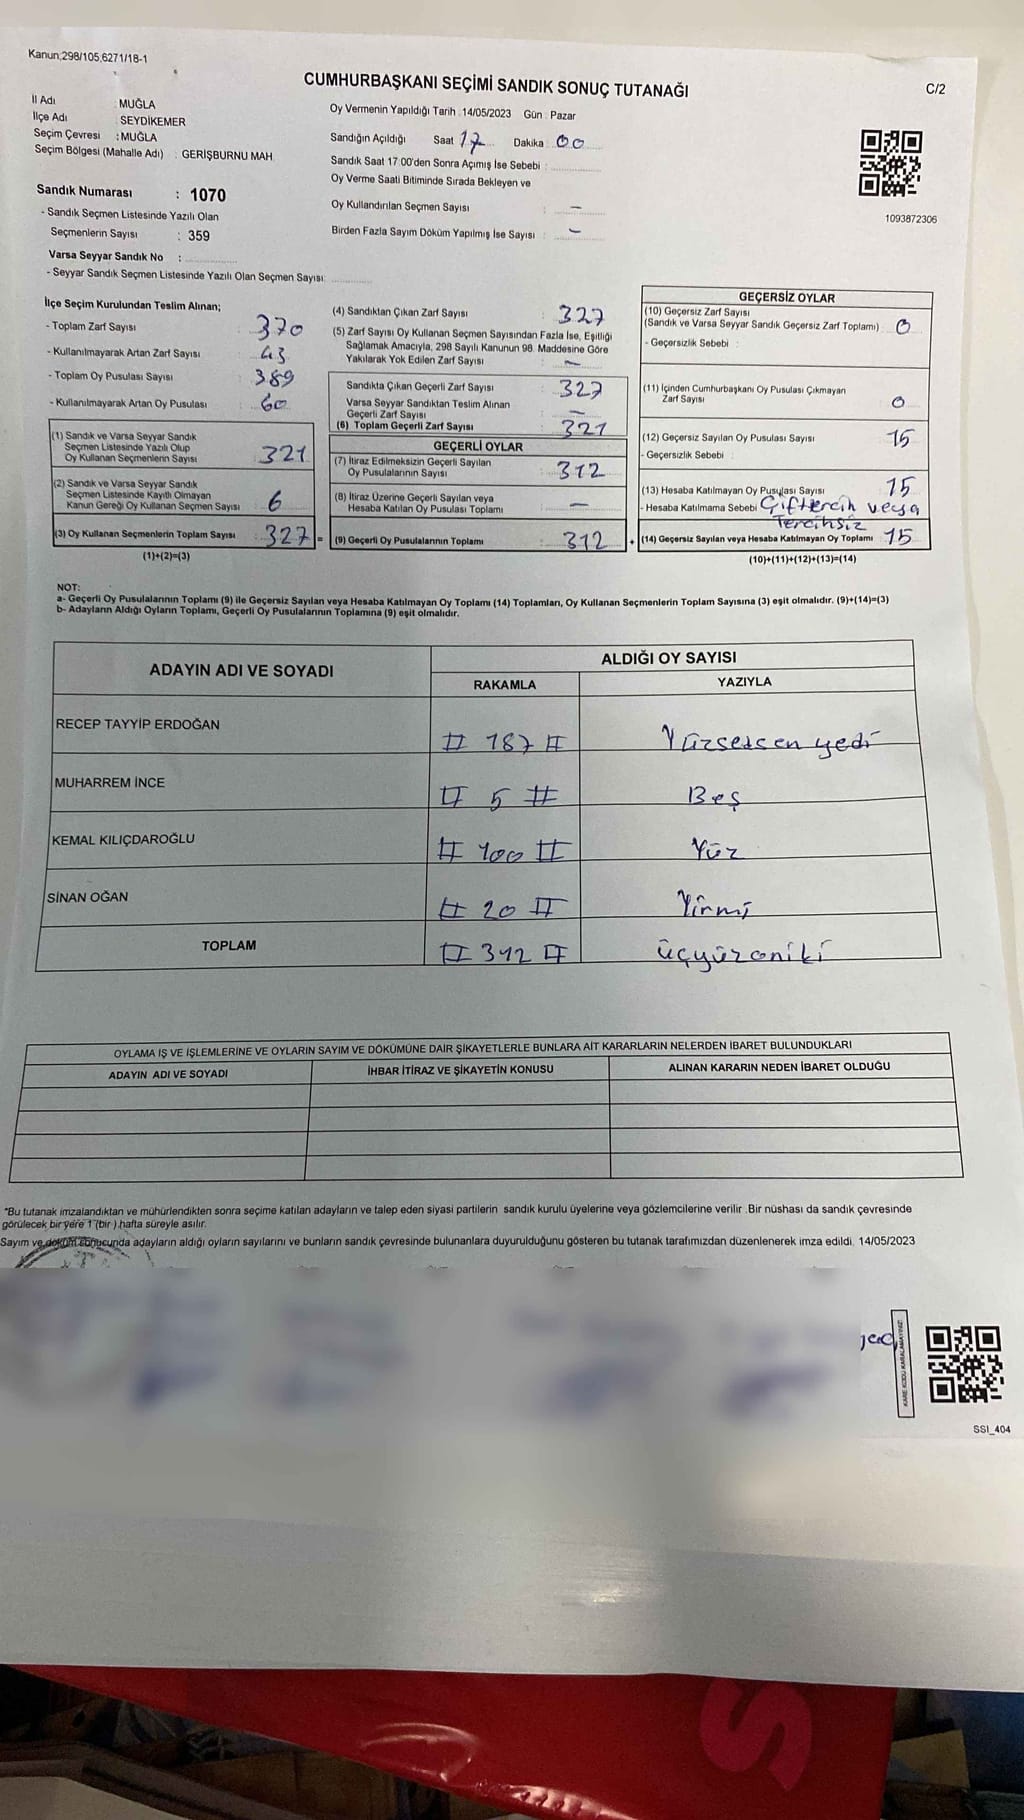 Kanun;298/105,6271/18-1
CUMHURBAŞKANI SEÇİMİ SANDIK SONUÇ TUTANAĞI
C/2
İl Adı : MUĞLA
İlçe Adı : SEYDİKEMER
Seçim Çevresi : MUĞLA
Seçim Bölgesi (Mahalle Adı) : GERİŞBURNU MAH
Sandık Numarası : 1070
- Sandık Seçmen Listesinde Yazılı Olan
Seçmenlerin Sayısı : 359
Varsa Seyyar Sandık No :
- Seyyar Sandık Seçmen Listesinde Yazılı Olan Seçmen Sayısı:
Oy Vermenin Yapıldığı Tarih : 14/05/2023 Gün : Pazar
Sandığın Açıldığı Saat 17 Dakika : 00
Sandık Saat 17:00'den Sonra Açımış İse Sebebi :
Oy Verme Saati Bitiminde Sırada Bekleyen ve
Oy Kullandırılan Seçmen Sayısı : –
Birden Fazla Sayım Döküm Yapılmış İse Sayısı : –
1093872306
İlçe Seçim Kurulundan Teslim Alınan;
- Toplam Zarf Sayısı : 370
- Kullanılmayarak Artan Zarf Sayısı : 43
- Toplam Oy Pusulası Sayısı : 389
- Kullanılmayarak Artan Oy Pusulası : 60
(1) Sandık ve Varsa Seyyar Sandık
Seçmen Listesinde Yazılı Olup
Oy Kullanan Seçmenlerin Sayısı : 321
(2) Sandık ve Varsa Seyyar Sandık
Seçmen Listesinde Kayıtlı Olmayan
Kanun Gereği Oy Kullanan Seçmen Sayısı : 6
(3) Oy Kullanan Seçmenlerin Toplam Sayısı : 327 =
(1)+(2)=(3)
(4) Sandıktan Çıkan Zarf Sayısı : 327
(5) Zarf Sayısı Oy Kullanan Seçmen Sayısından Fazla İse, Eşitliği
Sağlamak Amacıyla, 298 Sayılı Kanunun 98. Maddesine Göre
Yakılarak Yok Edilen Zarf Sayısı : –
Sandıkta Çıkan Geçerli Zarf Sayısı : 327
Varsa Seyyar Sandıktan Teslim Alınan
Geçerli Zarf Sayısı : –
(6) Toplam Geçerli Zarf Sayısı : 327
GEÇERLİ OYLAR
(7) İtiraz Edilmeksizin Geçerli Sayılan
Oy Pusulalarının Sayısı : 312
(8) İtiraz Üzerine Geçerli Sayılan veya
Hesaba Katılan Oy Pusulası Toplamı : –
(9) Geçerli Oy Pusulalarının Toplamı : 312 +
GEÇERSİZ OYLAR
(10) Geçersiz Zarf Sayısı
(Sandık ve Varsa Seyyar Sandık Geçersiz Zarf Toplamı) : 0
- Geçersizlik Sebebi :
(11) İçinden Cumhurbaşkanı Oy Pusulası Çıkmayan
Zarf Sayısı : 0
(12) Geçersiz Sayılan Oy Pusulası Sayısı 15
- Geçersizlik Sebebi :
(13) Hesaba Katılmayan Oy Pusulası Sayısı 15
- Hesaba Katılmama Sebebi Çift tercih veya
Tercihsiz
(14) Geçersiz Sayılan veya Hesaba Katılmayan Oy Toplamı 15
(10)+(11)+(12)+(13)=(14)
NOT:
a- Geçerli Oy Pusulalarının Toplamı (9) ile Geçersiz Sayılan veya Hesaba Katılmayan Oy Toplamı (14) Toplamları, Oy Kullanan Seçmenlerin Toplam Sayısına (3) eşit olmalıdır. (9)+(14)=(3)
b- Adayların Aldığı Oyların Toplamı, Geçerli Oy Pusulalarının Toplamına (9) eşit olmalıdır.
ADAYIN ADI VE SOYADI
ALDIĞI OY SAYISI
RAKAMLA YAZIYLA
RECEP TAYYİP ERDOĞAN # 187 # Yüzseksen yedi
MUHARREM İNCE # 5 # Beş
KEMAL KILIÇDAROĞLU # 100 # Yüz
SİNAN OĞAN # 20 # Yirmi
TOPLAM # 312 # üçyüzoniki
OYLAMA İŞ VE İŞLEMLERİNE VE OYLARIN SAYIM VE DÖKÜMÜNE DAİR ŞİKAYETLERLE BUNLARA AİT KARARLARIN NELERDEN İBARET BULUNDUKLARI
ADAYIN ADI VE SOYADI İHBAR İTİRAZ VE ŞİKAYETİN KONUSU ALINAN KARARIN NEDEN İBARET OLDUĞU
*Bu tutanak imzalandıktan ve mühürlendikten sonra seçime katılan adayların ve talep eden siyasi partilerin sandık kurulu üyelerine veya gözlemcilerine verilir. Bir nüshası da sandık çevresinde
görülecek bir yere 1 (bir) hafta süreyle asılır.
Sayım ve döküm sonucunda adayların aldığı oyların sayılarını ve bunların sandık çevresinde bulunanlara duyurulduğunu gösteren bu tutanak tarafımızdan düzenlenerek imza edildi. 14/05/2023
KARE KODU KARALAMAYINIZ!
SSI_404